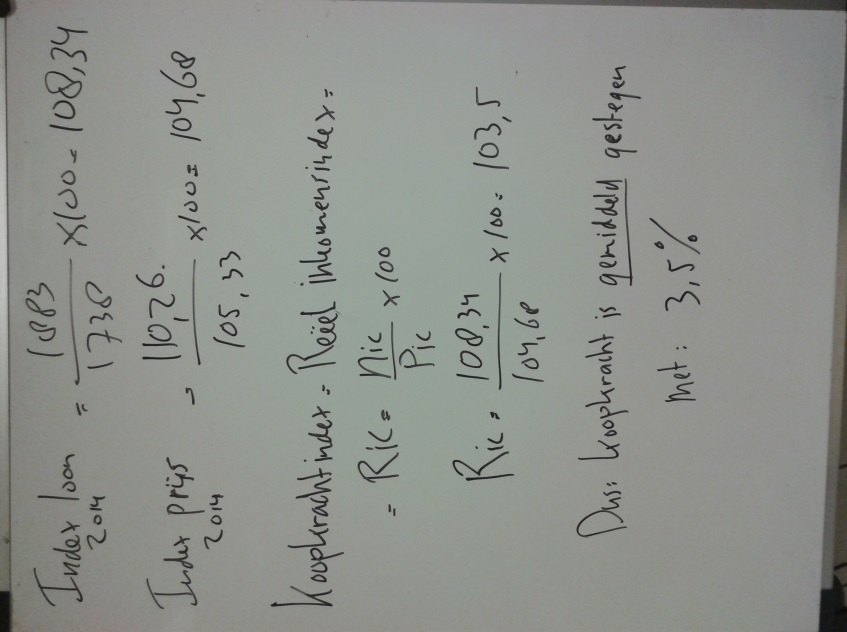 Index loon 2014 = 1883 / 1738 x100 = 108,34
Index prijs 2014 = 110,26. / 105,33 x100 = 104,68
Koopkrachtindex = Reëel inkomensindex =
= RIC = nic / Pic x 100
Ric = 108,34 / 104,68 x 100 = 103,5
Dus: koopkracht is gemiddeld gestegen
met: 3,5%